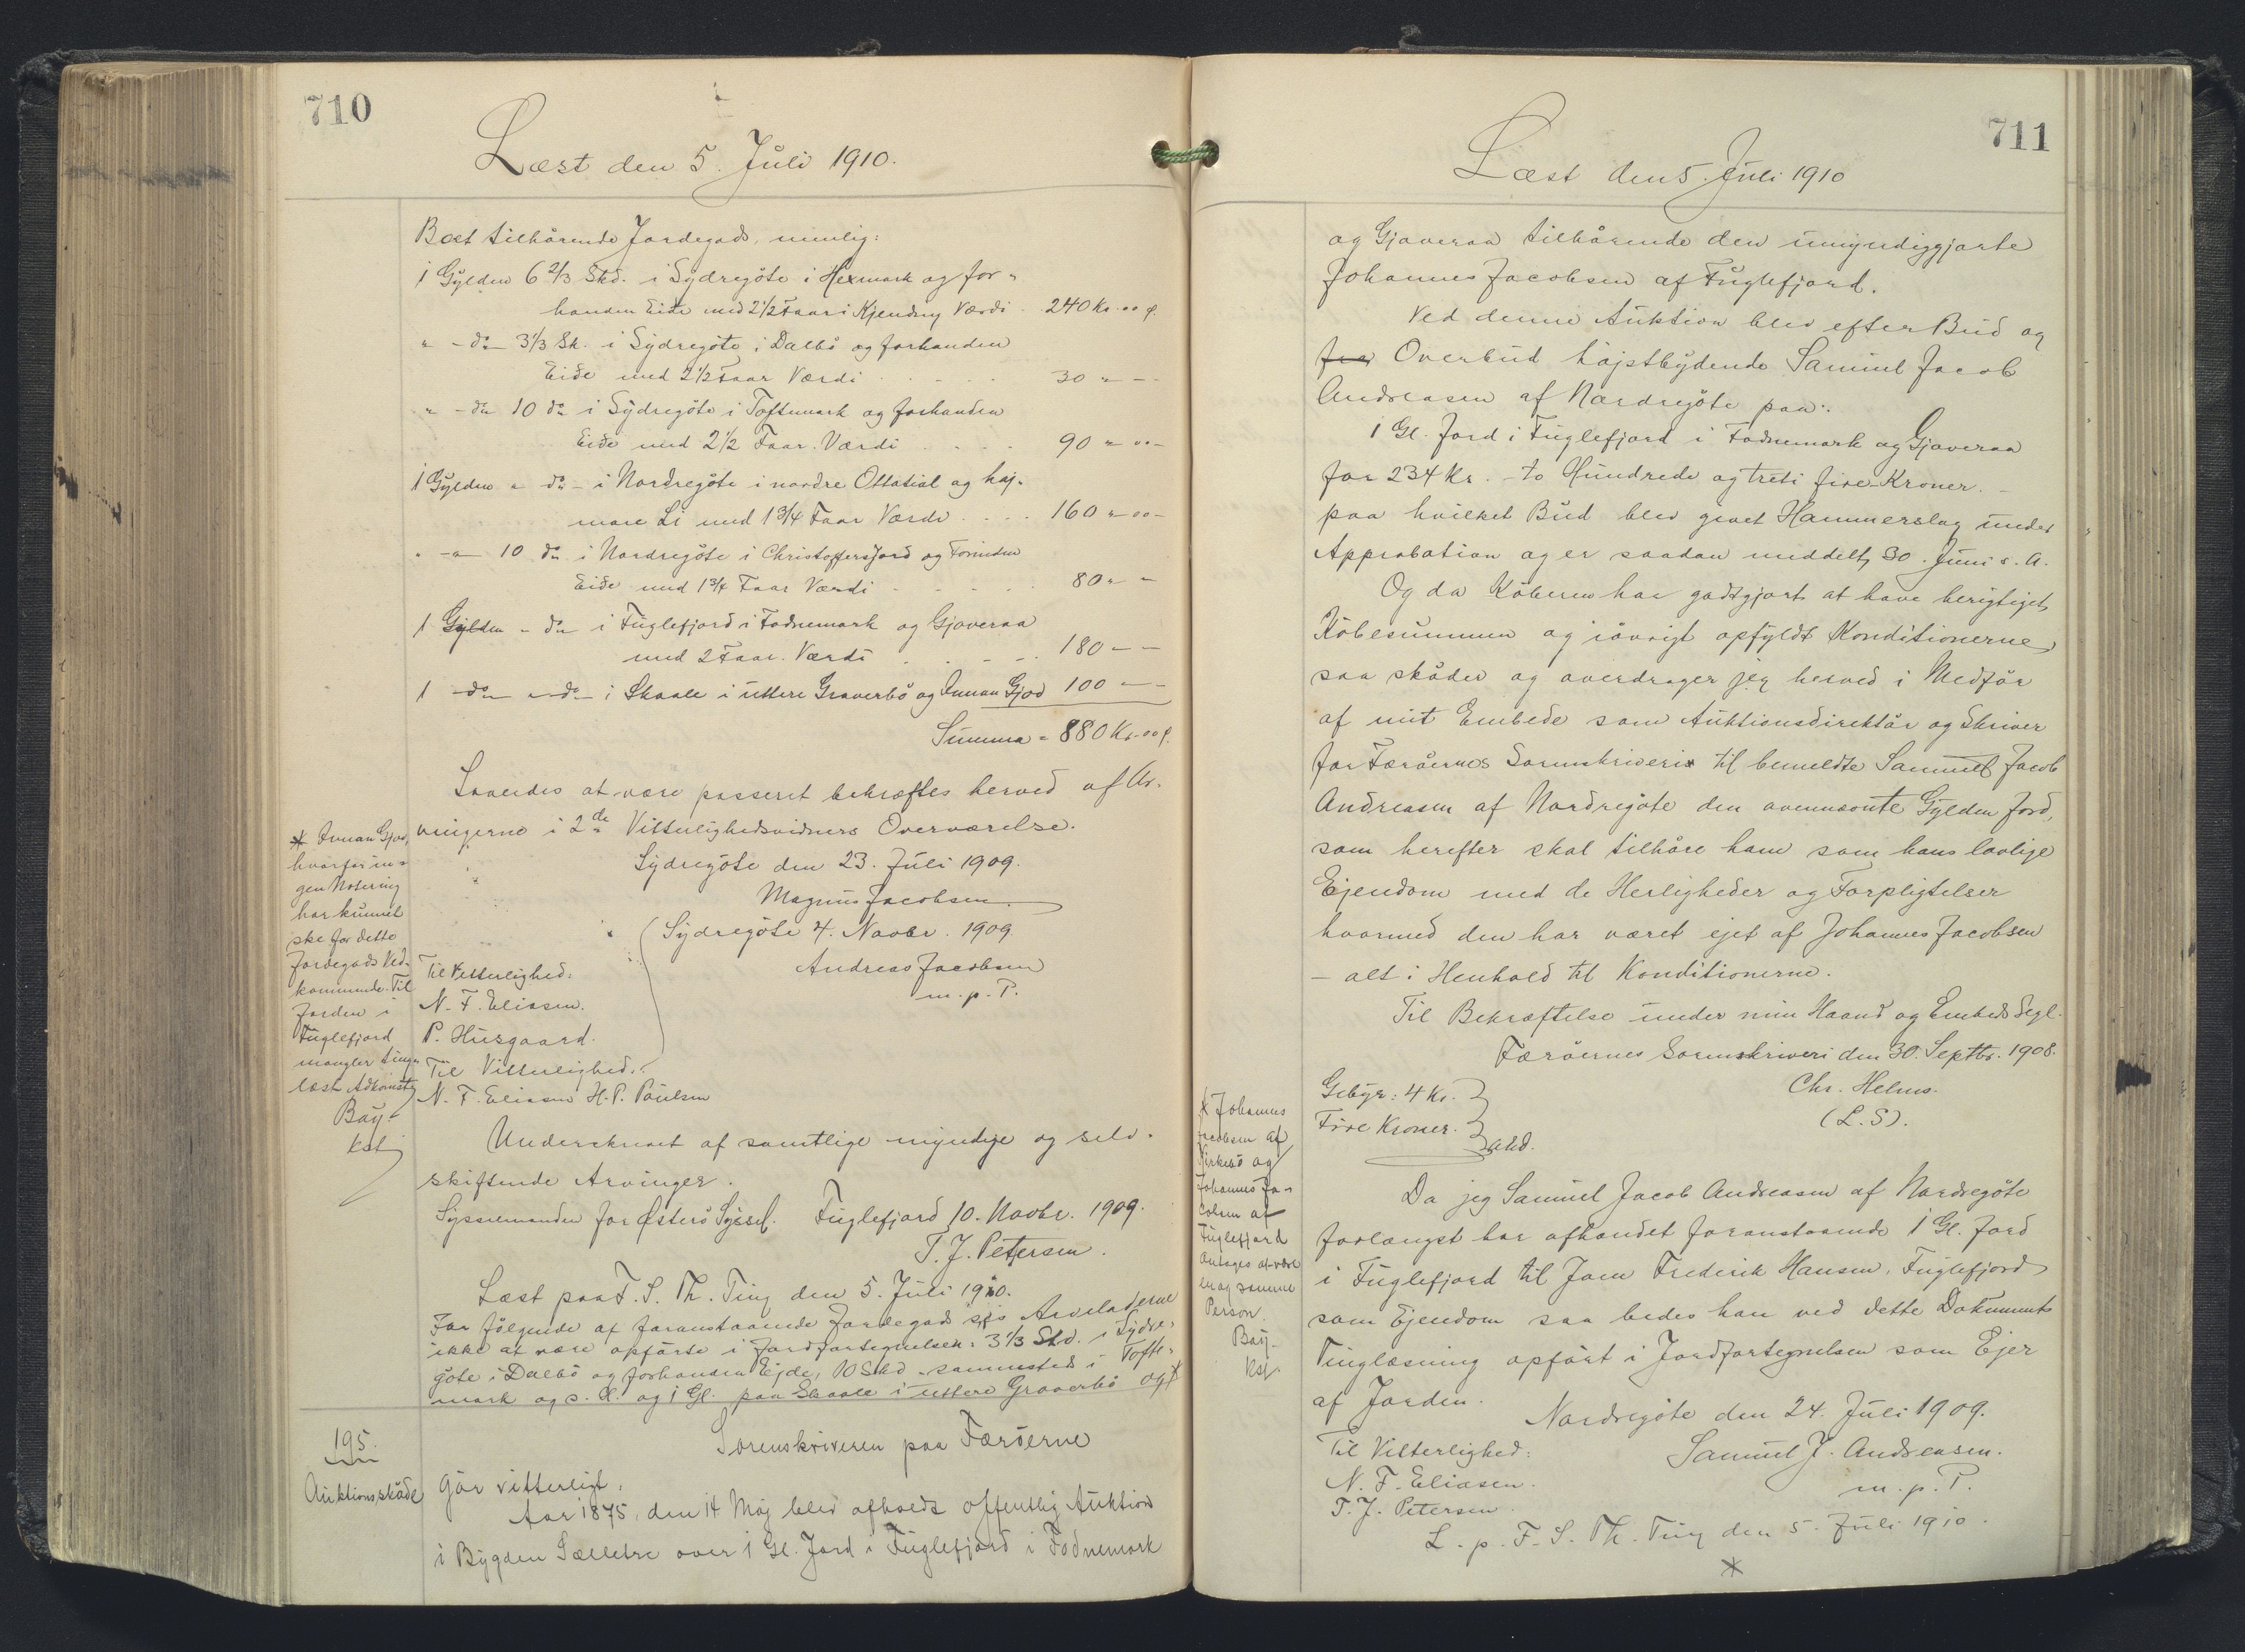 710
Læst den 5. Juli 1910.
Boet tilhørende Jordegods, nemlig:
1 Gylden 6 2/3 Skd. i Sydregöte i Hexmark og for-
handen Eide med 2 1/2 Faar i Kjendny Værdi - 240 Kr. 00 ø.
" - do - 3 1/3 Sk. i Sydregöte i Dalbö og forhanden
Eide med 2 1/2 Faar Værdi . . . . 30 " - -
" - do 10 do i Sydregöte i Toftemark og forhanden
Eide med 2 1/2 Faar. Værdi . . . . 90 " 00 -
1 Gylden " do - i Nordregöte i nordre Ottatial og høj-
mare Li med 1 3/4 Faar Værdi . . . . 160 " 00 -
" - " - 10 do i Nordregöte i ChristoffersJord og Forinden
Eide med 1 3/4 Faar Værdi - - - - 80 " -
1 Gylden - do i Fuglefjord i Fodnemark og Gjoveraa
med 2 Faar. Værdi . . . . 180 - -
1 - do - " do - i Skaale i uttere Graverbö og Innan Gjod 100 - -
Summa = 880 Kr. 00 ø.
Saaledes at være passeret bekræftes herved af Ar-
vingerne i 2de Vitterlighedsvidners Overværelse.
Sydregöte den 23. Juli 1909.
Magnus Jacobsen.
Sydregöte 4. Novbr. 1909.
Andreas Jacobsen
m. p. P.
Til Vitterlighed:
N. F. Eliasen.
P. Husgaard.
Til Vitterlighed.
N. F. Eliasen H. P. Poulsen
Underskrevet af samtlige myndige og selv-
skiftende Arvinger.
Sysselmanden for Østerö Syssel. Fuglefjord 10. Novbr. 1909.
T. J. Petersen.
Læst paa F. S. Th. Ting den 5. Juli 1910.
For følgende af foranstaaende Jordegods sjs Arveladerne
ikke at være opførte i Jordfortegnelsen: 3 1/3 Skd. i Sydre-
göte i Dalbö og forhanden Ejde, 10 Skd - sammesteds i Tofte-
mark og s. E. og 1 Gl. paa Skaale i uttere Graverbö og *
* Innan Gjov,
hvorfor in-
gen Notering
har kunnet
ske for dette
Jordegods Ved-
kommende. Til
Jorden i
Fuglefjord
mangler ting-
læst Adkomst
Bay-
kst
195.
Auktionsskøde
Sorenskriveren paa Færöerne
gör vitterligt:
Aar 1875, den 14 Maj blev afholdt offentlig Auktion
i Bygden Sælletre over 1 Gl. Jord i Fuglefjord i Fodnemark
711
Læst den 5. Juli 1910
og Gjoveraa tilhørende den umyndiggjorte
Johannes Jacobsen af Fuglefjord.
Ved denne Auktion blev efter Bud og
fra Overbud højstbydende Samuel Jacob
Andreasen af Nordregöte paa:
1 Gl. Jord i Fuglefjord i Fodnemark og Gjoveraa
for 234 Kr. - to Hundrede og treti fire Kroner. -
paa hvilket Bud blev givet Hammerslag under
Approbation og er saadan meddelt 30. Juni s. A.
Og da Köberen har godtgjort at have berigtiget
Köbesummen og iövrigt opfyldt Konditionerne,
saa skøder og overdrager jeg herved i Medför
af mit Embede som Auktionsdirektör og Skriver
for Færöernes Sorenskriveri til bemeldte Samuel Jacob
Andreasen af Nordregöte den ovennævnte Gylden Jord,
som herefter skal tilhøre ham som hans lovlige
Ejendom med de Herligheder og Forpligtelser
hvormed den har været ejet af Johannes Jacobsen
- alt i Henhold til Konditionerne.
Til Bekræftelse under min Haand og Embeds Segl.
Færöernes Sorenskriveri den 30. Septbr. 1908.
Chr. Helms.
(L. S).
Gebyr: 4 Kr.
Fire Kroner.
Da jeg Samuel Jacob Andreasen af Nordregöte
forlængst har afhændet foranstaaende 1 Gl. Jord
i Fuglefjord til Joen Frederik Hansen, Fuglefjord
som Ejendom saa bedes han ved dette Dokuments
Tinglæsning opført i Jordfortegnelsen som Ejer
af Jorden.
Nordregöte den 24. Juli 1909.
Samuel J. Andreasen.
m. p. P.
Til Vitterlighed:
N. F. Eliasen.
T. J. Petersen.
L. p. F. S. Th. Ting den 5. Juli 1910.
*
* Johannes
Jacobsen af
Kirkebö og
Johannes Ja-
cobsen af
Fuglefjord
antages at være
en og samme
Person.
Bay-
kst